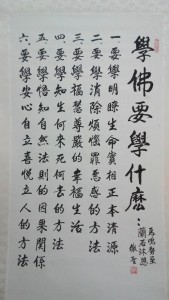 學佛要學什麼：
一.要學明瞭生命實相正本清源
二.要學消除煩惱罪惡感的方法
三.要學福慧尊嚴的幸福生活
四.要學知生何來死何去的方法
五.要學悟知自然法則的因果關係
六.要學安心自立喜悅立人的方法